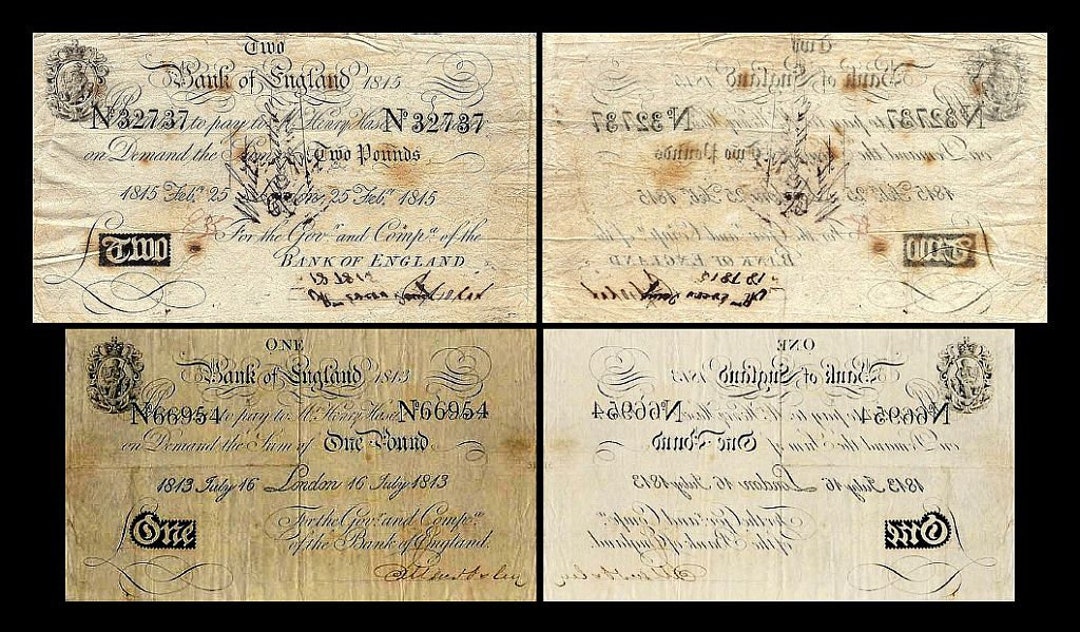 Two
Bank of England 1815
Nº 32737 to pay to Mr. Henry Hase Nº 32737
on Demand the Sum Two Pounds
1815 Feby. 25 London, 25 Feby. 1815
For the Govr. and Compa. of the
Two
BANK OF ENGLAND
Two
Bank of England 1815
Nº 32737 to pay to Mr. Henry Hase Nº 32737
on Demand the Two Pounds
1815 Feby. 25 London 25 Feby. 1815
For the Govr. and Compa. of the
Two
BANK OF ENGLAND
ONE
Bank of England 1813
Nº 66954 to pay to Mr. Henry Hase Nº 66954
on Demand the Sum of One Pound
1813 July 16 London 16 July 1813
For the Govr. and Compa.
One
of the Bank of England.
ONE
Bank of England 1813
Nº 66954 to pay to Mr. Henry Hase Nº 66954
on Demand the Sum of One Pound
1813 July 16 London 16 July 1813
For the Govr. and Compa.
One
of the Bank of England.